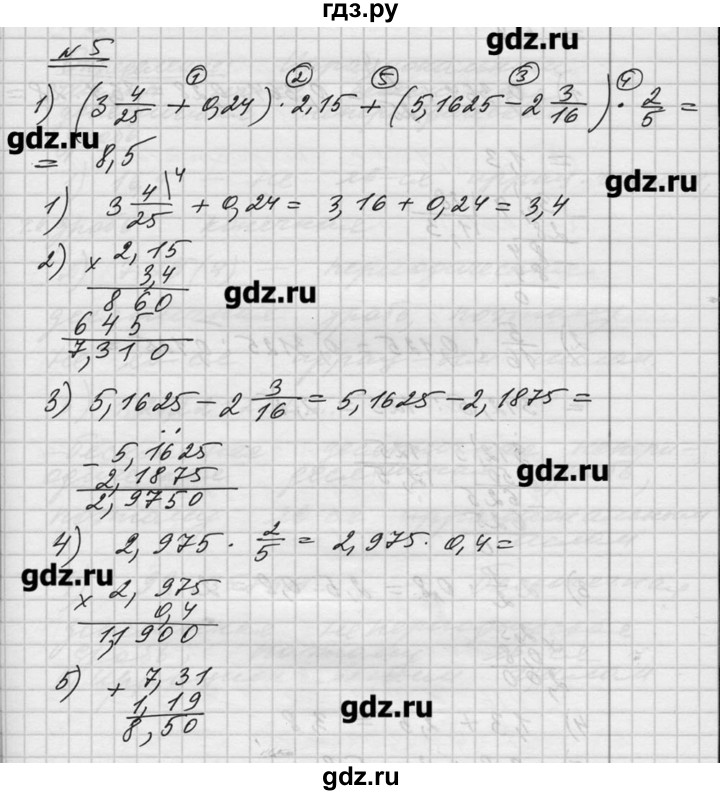 гдз.ру
gdz.ru
№5
1) (3 4/25 + 0,24) · 2,15 + (5,1625 − 2 3/16) · 2/5 =
① ② ⑤ ③ ④
gdz.ru
= 8,5
gdz.ru
1) 3 4/25 \4 + 0,24 = 3,16 + 0,24 = 3,4
2) × 2,15
3,4
gdz.ru
860
645
7,310
3) 5,1625 − 2 3/16 = 5,1625 − 2,1875 =
− 5,1625
2,1875
gdz.ru
2,9750
4) 2,975 · 2/5 = 2,975 · 0,4 =
gdz.ru
× 2,975
0,4
1,1900
5) + 7,31
1,19
gdz.ru
8,50
gdz.ru